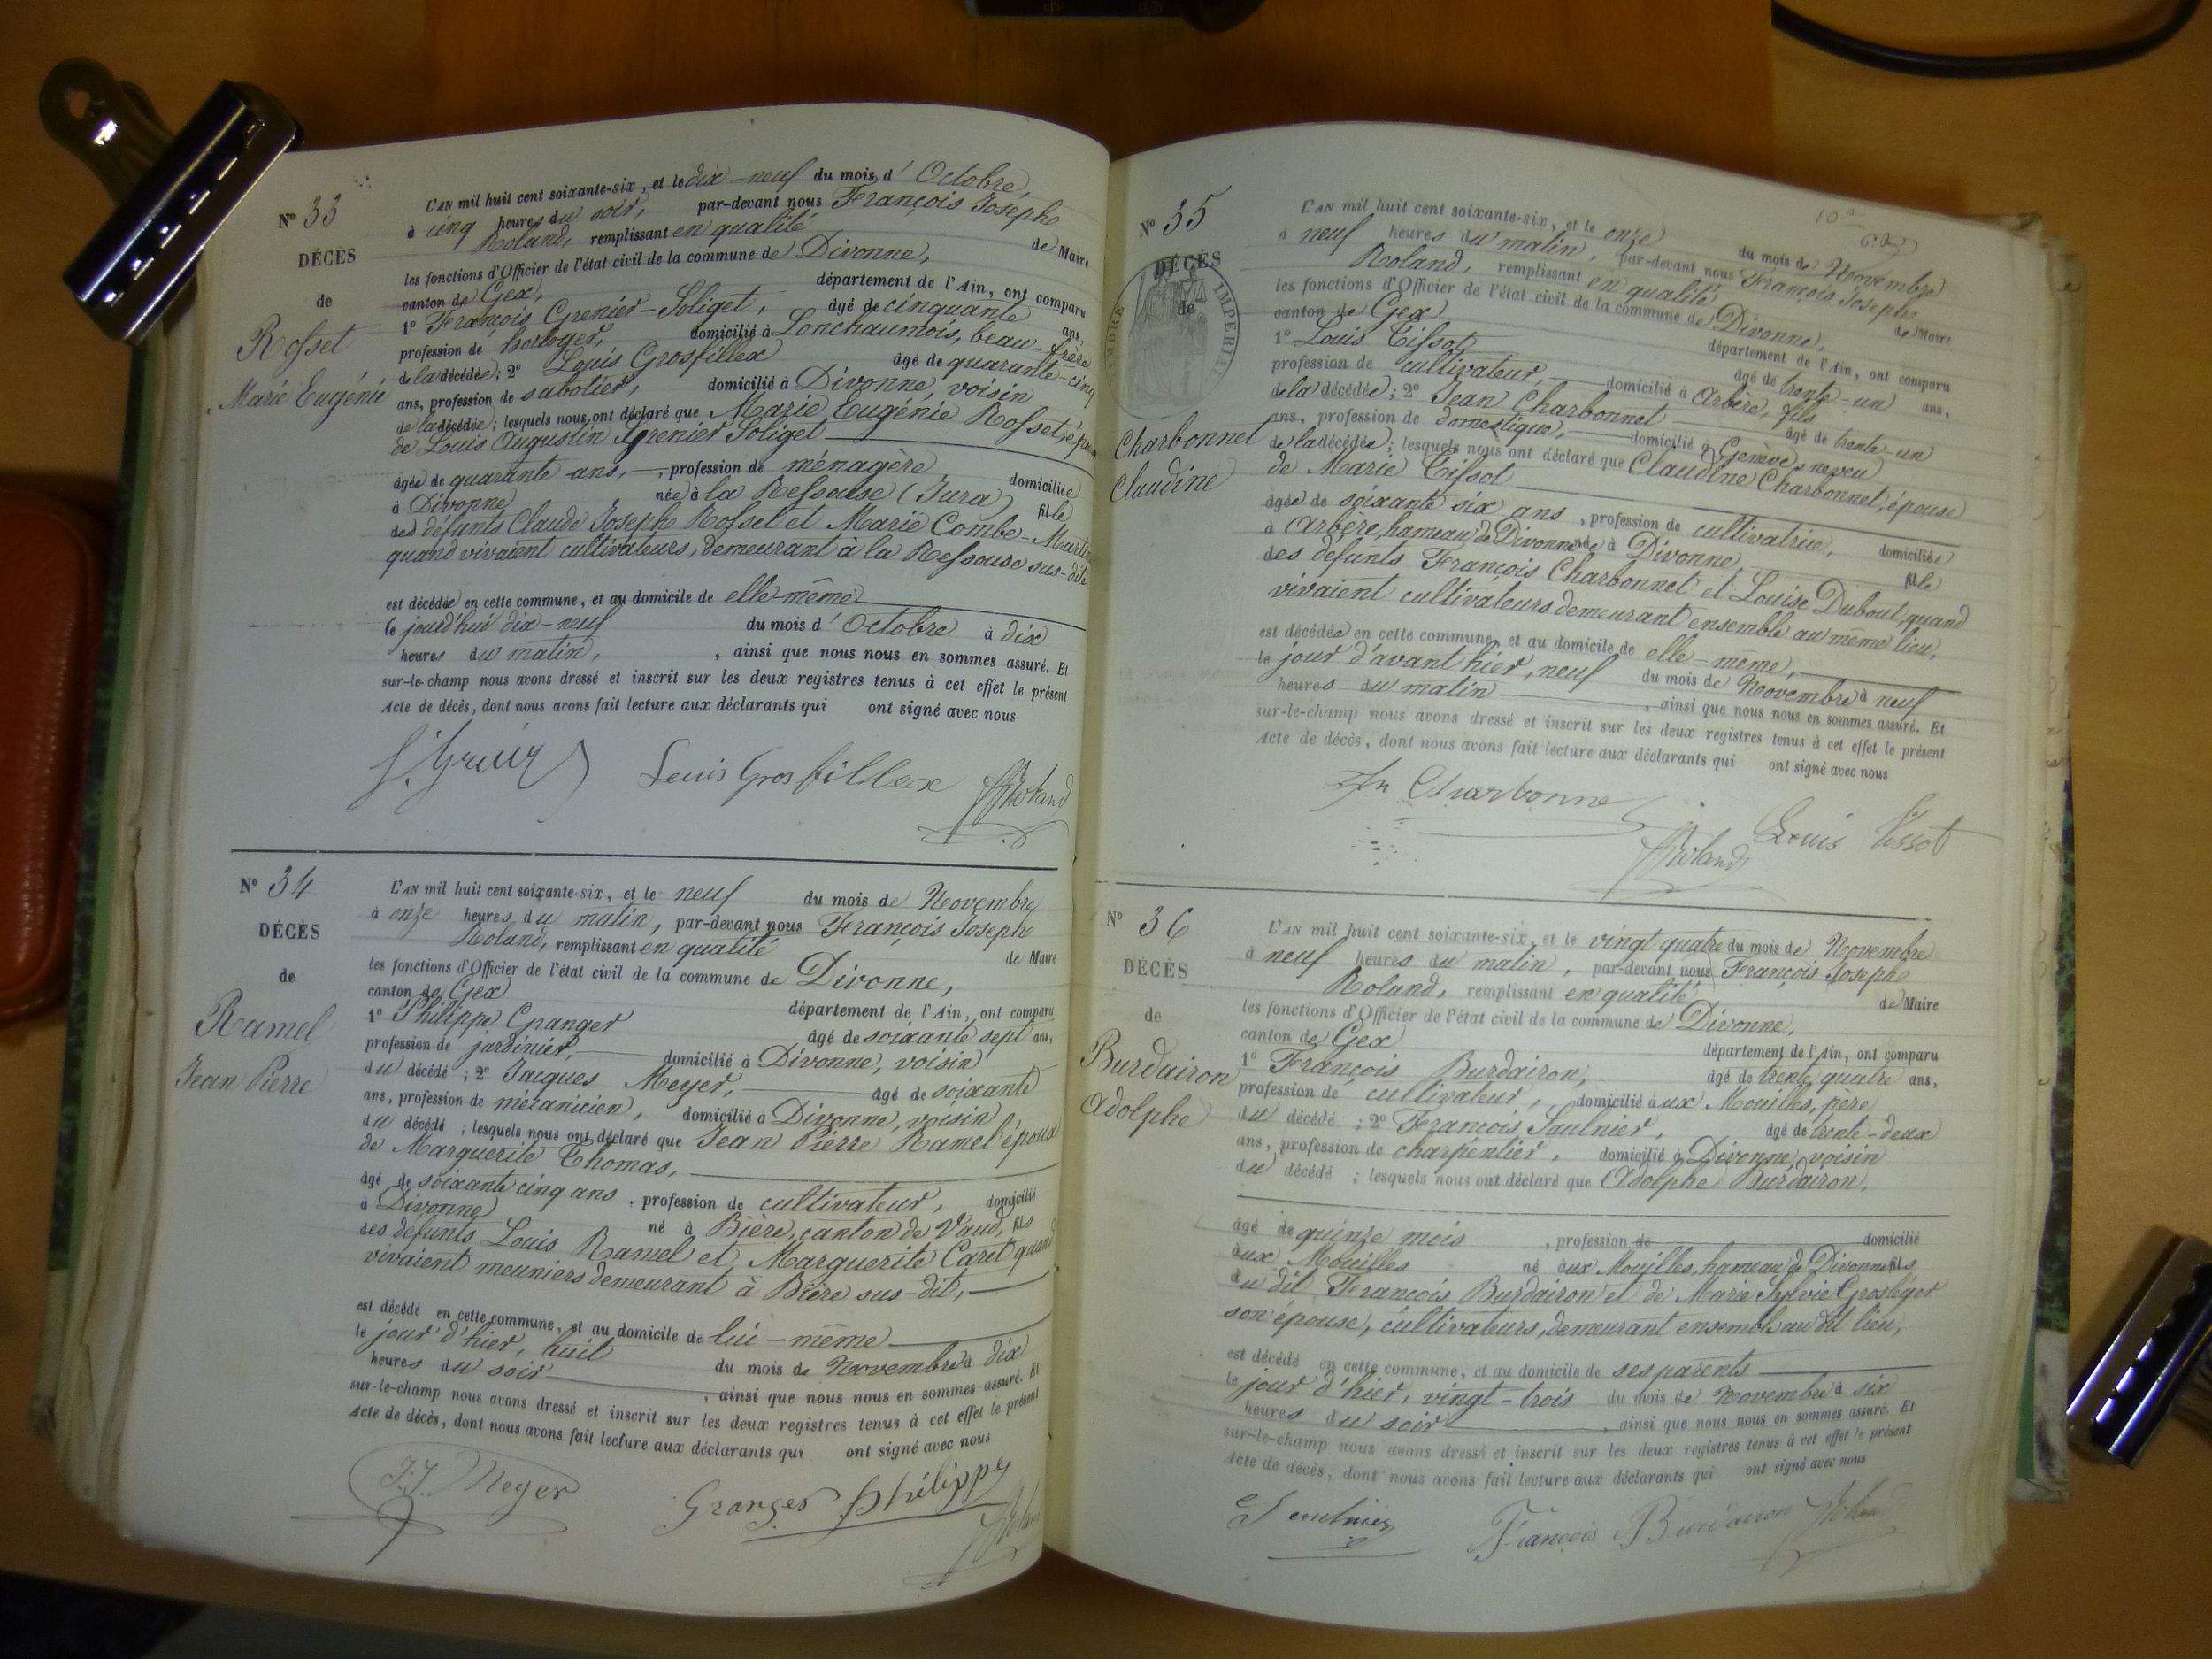 N° 33
DÉCÈS
de
Rosset
Marie Eugénie
L'AN mil huit cent soixante-six, et le dix-neuf du mois d'Octobre,
à cinq heures du soir, par-devant nous François Joseph
Roland, remplissant en qualité de Maire
les fonctions d'Officier de l'état civil de la commune de Divonne,
canton de Gex, département de l'Ain, ont comparu
1° François Grenier-Soliget, âgé de cinquante ans,
profession de horloger, domicilié à Lonchaumois, beau-frère
de la décédée; 2° Louis Grosfillex âgé de quarante-cinq
ans, profession de sabotier, domicilié à Divonne, voisin
de la décédée; lesquels nous ont déclaré que Marie Eugénie Rosset, épouse
de Louis Augustin Grenier Soliget
âgée de quarante ans, profession de ménagère domiciliée
à Divonne née à la Ressouse (Jura) fille
des défunts Claude Joseph Rosset et Marie Combe-Martin
quand vivaient cultivateurs, demeurant à la Ressouse sus-dite
est décédée en cette commune, et au domicile de elle même
le jourd'hui dix-neuf du mois d'Octobre à dix
heures du matin, , ainsi que nous nous en sommes assuré. Et
sur-le-champ nous avons dressé et inscrit sur les deux registres tenus à cet effet le présent
Acte de décès, dont nous avons fait lecture aux déclarants qui ont signé avec nous
Louis Grosfillex Roland
N° 34
DÉCÈS
de
Ramel
Jean Pierre
L'AN mil huit cent soixante-six, et le neuf du mois de Novembre
à onze heures du matin, par-devant nous François Joseph
Roland, remplissant en qualité de Maire
les fonctions d'Officier de l'état civil de la commune de Divonne,
canton de Gex département de l'Ain, ont comparu
1° Philippe Granger âgé de soixante sept ans,
profession de jardinier, domicilié à Divonne, voisin
du décédé; 2° Jacques Meyer, âgé de soixante
ans, profession de mécanicien, domicilié à Divonne, voisin
du décédé; lesquels nous ont déclaré que Jean Pierre Ramel époux
de Marguerite Thomas,
âgé de soixante cinq ans, profession de cultivateur, domicilié
à Divonne né à Bière, canton de Vaud, fils
des défunts Louis Ramel et Marguerite Caret quand
vivaient meuniers demeurant à Bière sus-dit,
est décédé en cette commune, et au domicile de lui-même
le jour d'hier, huit du mois de Novembre à dix
heures du soir , ainsi que nous nous en sommes assuré. Et
sur-le-champ nous avons dressé et inscrit sur les deux registres tenus à cet effet le présent
Acte de décès, dont nous avons fait lecture aux déclarants qui ont signé avec nous
J.J. Meyer Granger Philippe
N° 35
DÉCÈS
de
TIMBRE IMPERIAL
Charbonnet
Claudine
L'AN mil huit cent soixante-six, et le onze du mois de Novembre
à neuf heures du matin, par-devant nous François Joseph
Roland, remplissant en qualité de Maire
les fonctions d'Officier de l'état civil de la commune de Divonne,
canton de Gex département de l'Ain, ont comparu
1° Louis Tissot âgé de trente-un ans,
profession de cultivateur, domicilié à Arbère, fils
de la décédée; 2° Jean Charbonnet âgé de trente-un
ans, profession de domestique, domicilié à Genève, neveu
de la décédée; lesquels nous ont déclaré que Claudine Charbonnet, épouse
de Marie Tissot
âgée de soixante six ans, profession de cultivatrice, domiciliée
à Arbère, hameau de Divonne née à Divonne, fille
des défunts François Charbonnet et Louise Dubout, quand
vivaient cultivateurs demeurant ensemble au même lieu,
est décédée en cette commune, et au domicile de elle-même,
le jour d'avant hier, neuf du mois de Novembre à neuf
heures du matin , ainsi que nous nous en sommes assuré. Et
sur-le-champ nous avons dressé et inscrit sur les deux registres tenus à cet effet le présent
Acte de décès, dont nous avons fait lecture aux déclarants qui ont signé avec nous
Jn Charbonne Louis Tissot
Roland
N° 36
DÉCÈS
de
Burdairon
Adolphe
L'AN mil huit cent soixante-six, et le vingt quatre du mois de Novembre
à neuf heures du matin, par-devant nous François Joseph
Roland, remplissant en qualité de Maire
les fonctions d'Officier de l'état civil de la commune de Divonne,
canton de Gex département de l'Ain, ont comparu
1° François Burdairon, âgé de trente quatre ans,
profession de cultivateur, domicilié aux Mouilles, père
du décédé; 2° François Saulnier, âgé de trente-deux
ans, profession de charpentier, domicilié à Divonne voisin
du décédé; lesquels nous ont déclaré que Adolphe Burdairon,
âgé de quinze mois, profession de domicilié
aux Mouilles né aux Mouilles, hameau de Divonne fils
du dit François Burdairon et de Marie Sylvie Grosléger
son épouse, cultivateurs, demeurant ensemble au dit lieu,
est décédé en cette commune, et au domicile de ses parents
le jour d'hier, vingt-trois du mois de Novembre à six
heures du soir , ainsi que nous nous en sommes assuré. Et
sur-le-champ nous avons dressé et inscrit sur les deux registres tenus à cet effet le présent
Acte de décès, dont nous avons fait lecture aux déclarants qui ont signé avec nous
Saulnier François Burdairon Roland